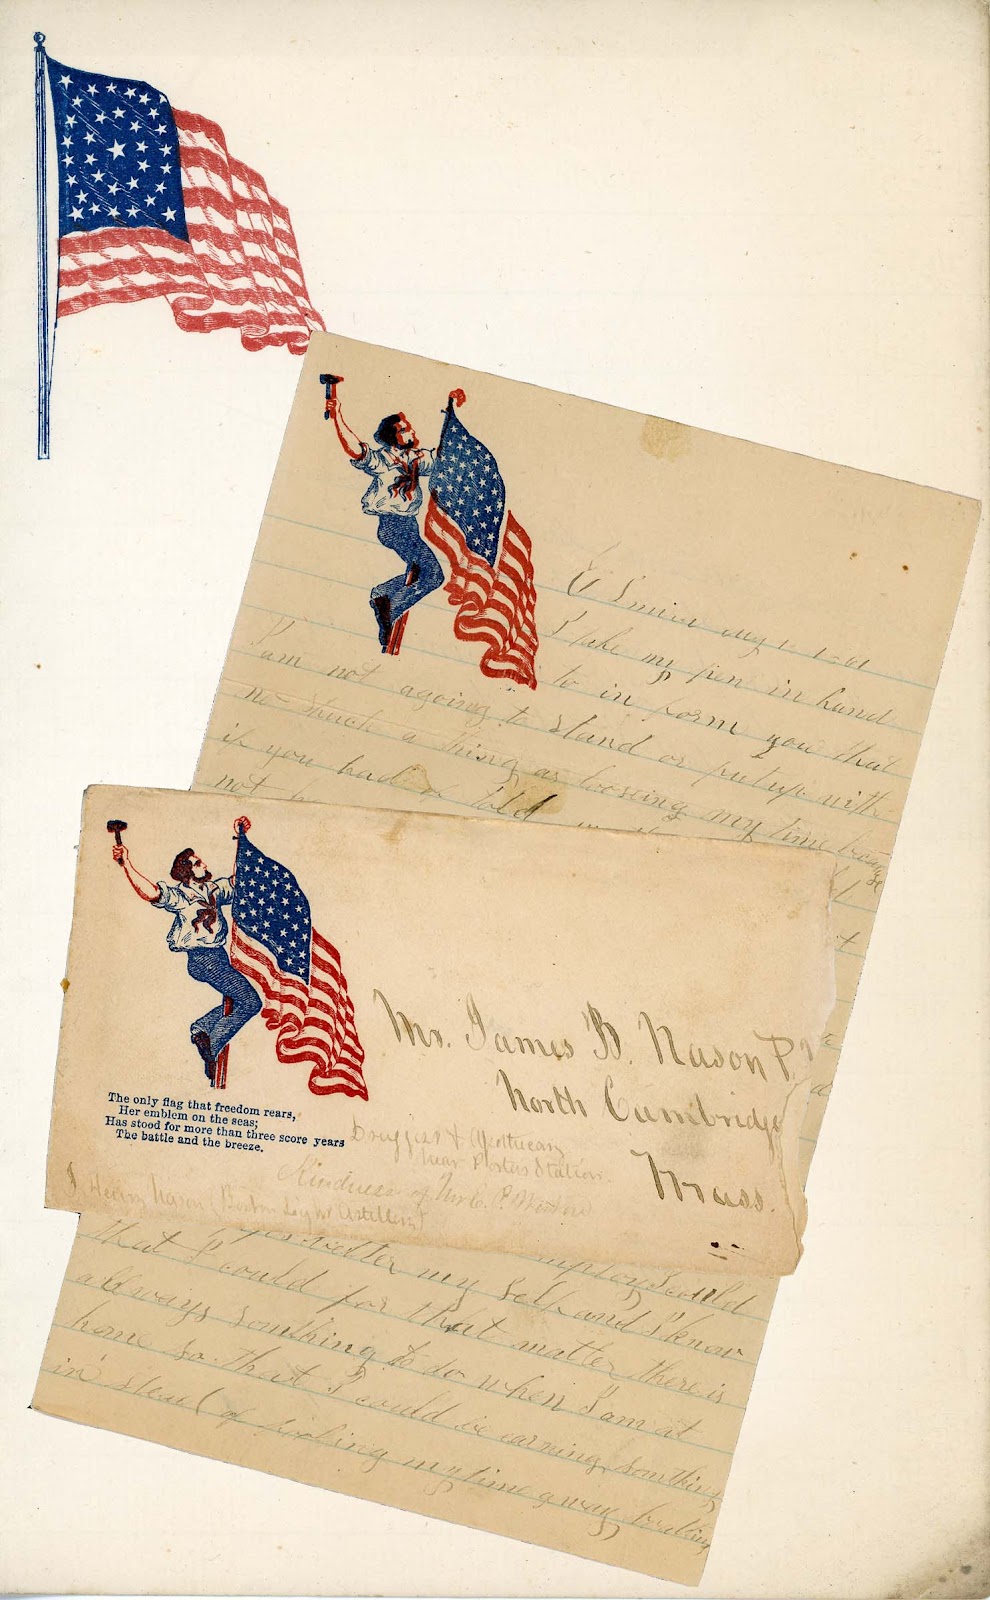 I take my pen in hand
to in form you that
I am not agoing to stand or put up with
no shuch a thing as loosing my time because
if you had of told
not
Mr. James B. Nason
North Cambridge
Mass.
The only flag that freedom rears,
Her emblem on the seas;
Has stood for more than three score years
The battle and the breeze.
Druggist & Apothecary
near Porters Station.
Kindness of Mr C. P.
J. Henry Nason (Boston Light Artillery)
my self and I know
that I could for that matter there is
allways somthing to do when I am at
home so that I could be earning somthing
in stead of my time away